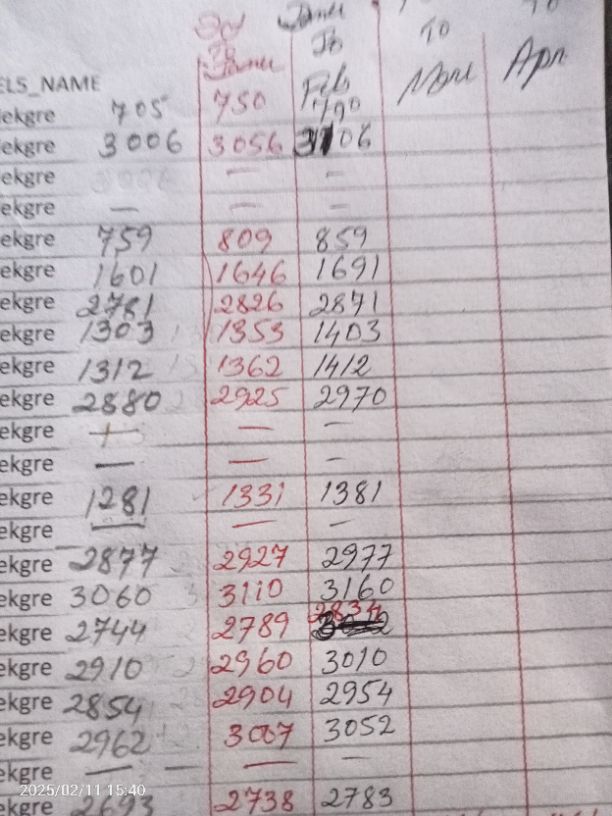 To
To
Janu
To
ELS_NAME
Janu
Feb
Apr
ekgre 705 750 790
ekgre 3006 3056 3106
ekgre — —
ekgre — — —
ekgre 759 809 859
ekgre 1601 1646 1691
ekgre 2781 2826 2871
ekgre 1303 1353 1403
ekgre 1312 1362 1412
ekgre 2880 2925 2970
ekgre — — —
ekgre — — —
ekgre 1281 1331 1381
ekgre — — —
ekgre 2877 2927 2977
ekgre 3060 3110 3160
ekgre 2744 2789 2834
ekgre 2910 2960 3010
ekgre 2854 2904 2954
ekgre 2962 3007 3052
ekgre — — — —
ekgre 2693 2738 2783
2025/02/11 15:40